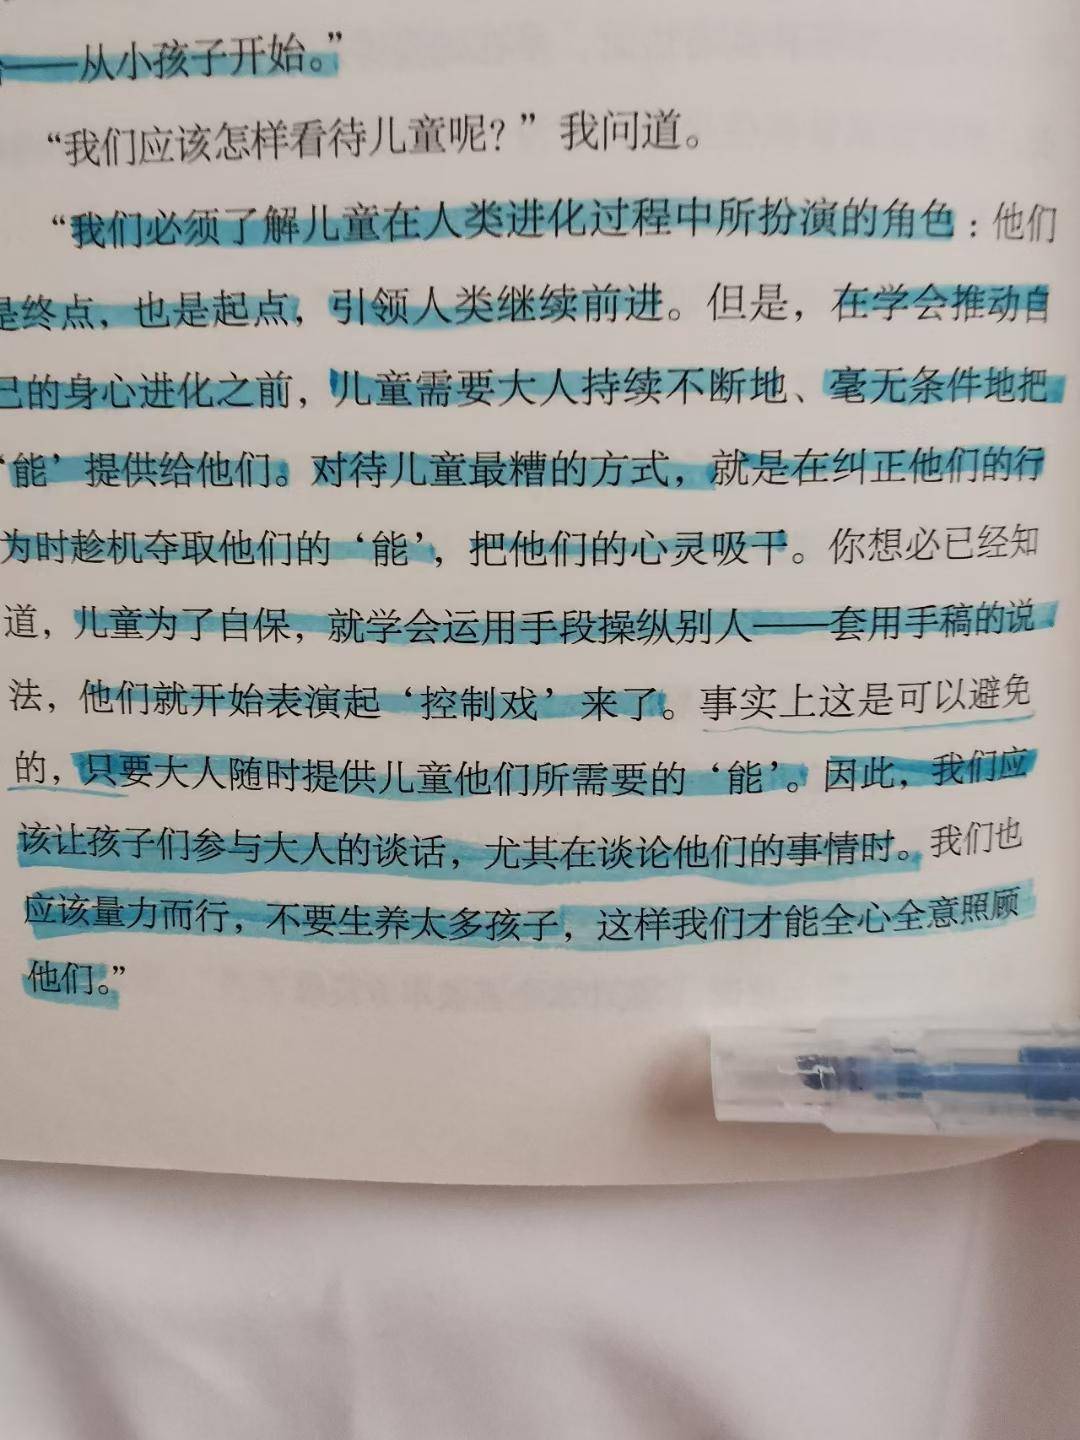 ——从小孩子开始。”
“我们应该怎样看待儿童呢？”我问道。
“我们必须了解儿童在人类进化过程中所扮演的角色：他们
是终点，也是起点，引领人类继续前进。但是，在学会推动自
己的身心进化之前，儿童需要大人持续不断地、毫无条件地把
‘能’提供给他们。对待儿童最糟的方式，就是在纠正他们的行
为时趁机夺取他们的‘能’，把他们的心灵吸干。你想必已经知
道，儿童为了自保，就学会运用手段操纵别人——套用手稿的说
法，他们就开始表演起‘控制戏’来了。事实上这是可以避免
的，只要大人随时提供儿童他们所需要的‘能’。因此，我们应
该让孩子们参与大人的谈话，尤其在谈论他们的事情时。我们也
应该量力而行，不要生养太多孩子，这样我们才能全心全意照顾
他们。”